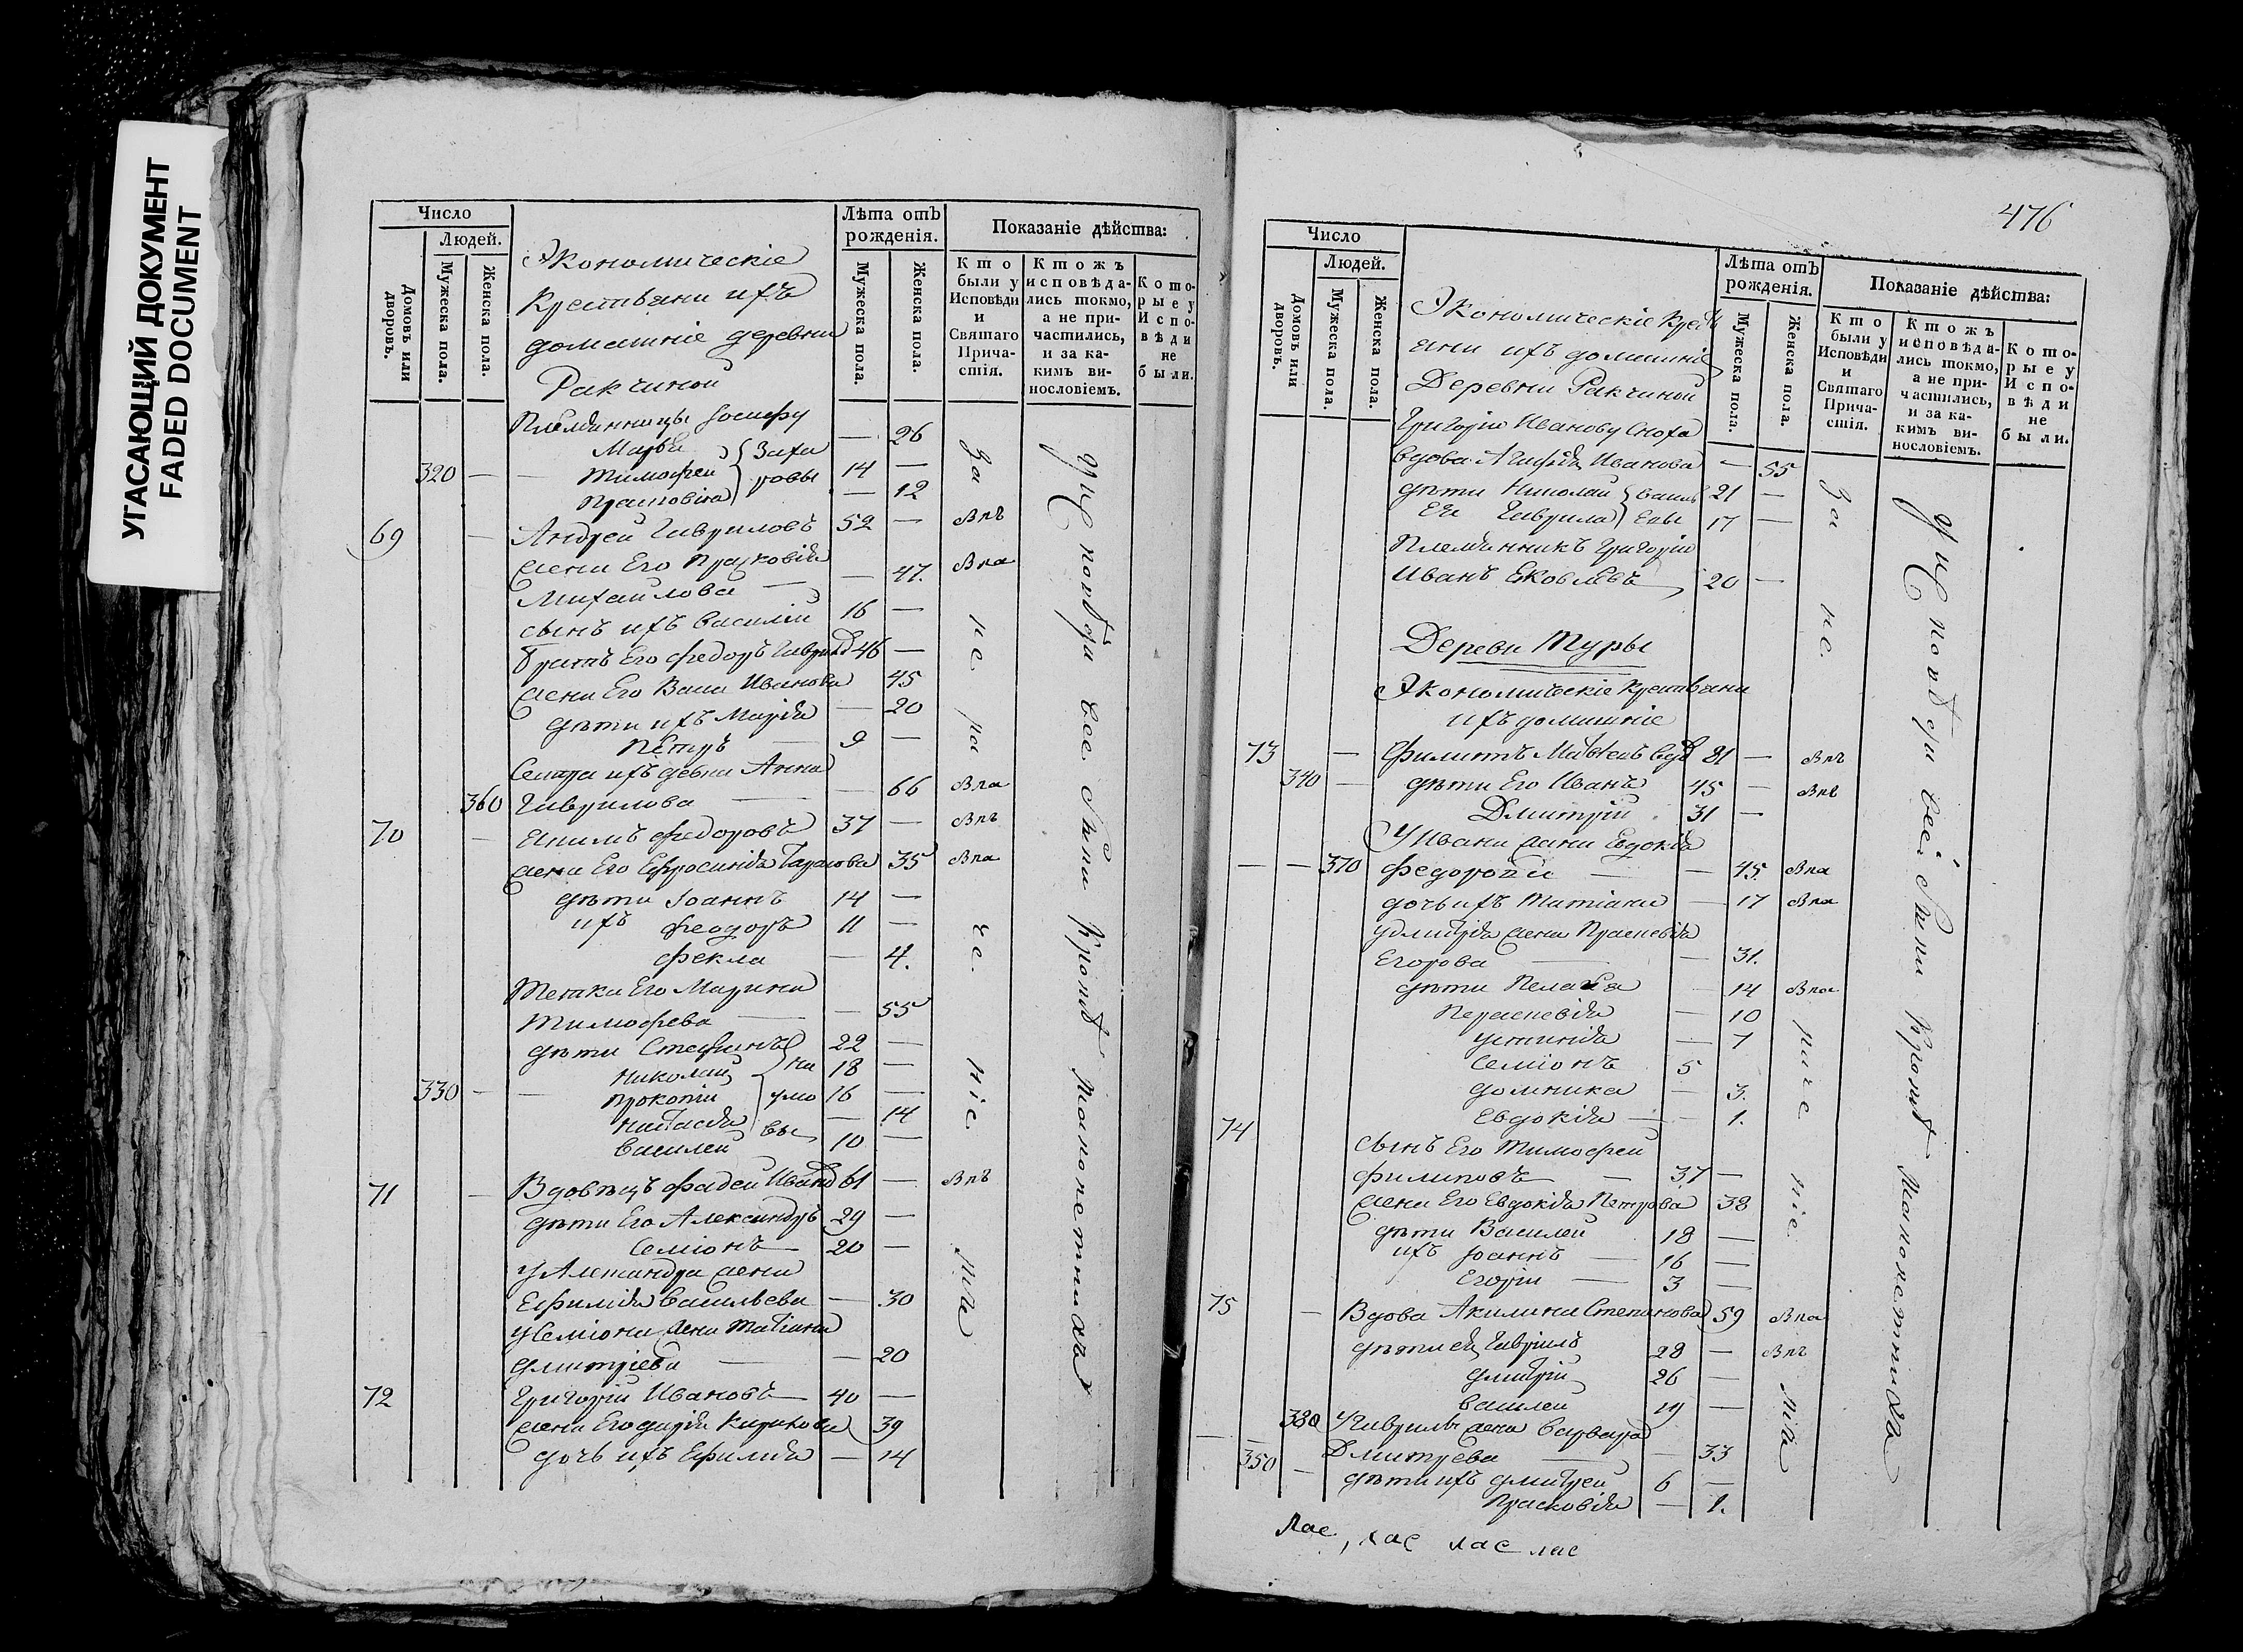 УГАСАЮЩИЙ ДОКУМЕНТ
FADED DOCUMENT
Число
Людей.
Домовъ или дворовъ.
Мужеска пола.
Женска пола.
Экономическіе
крестьяни ихъ
домашніе деревни
Ракчиной
Лѣта отъ рожденія.
Мужеска пола.
Женска пола.
Показаніе дѣйства:
Кто были у Исповѣди и Святаго Причастія.
Ктожъ исповѣдались токмо, а не причастились, и за какимъ винословіемъ.
Которые у Исповѣди не были.
Племянницы Іосифу
Марья — 26
320 — Тимофей 14 —
Прасковія — 12
Заха
ровы
69 — Андрей Гавриловъ 52 — Впъ
жена Его Прасковія
Михайлова — — 47. Впа
сынъ ихъ Василій 16 —
братъ Его Федоръ Гаврил 46 —
жена Его Васа Иванова 45
дѣти ихъ Марія — 20
Петръ — 9 —
Сестра ихъ девка Анна
360 Гаврилова — — 66 Впа
70 — Федоровъ 37 — Впъ
жена Его Ефросинія Тарасова 35 Впа
дѣти Іоаннъ 14 —
ихъ Феодоръ 11 —
Фекла — 4.
Тетка Его Марина
Тимофева — — 55
дѣти Стефанъ 22 —
Николай 18 —
330 — — Прокопій 16 —
Настасія — 14
Василей 10 —
На
умо
вы
71 — Вдовецъ Фадей Иван 61 — Впъ
дѣти Его Александръ 29 —
Семіонъ 20 —
у Александра жена
Ефимія Васильева — 30
у Семіона жена Татіана
Дмитріева — — 20
72 Григорій Ивановъ — 40 —
жена Его Дарія Карпова 39
дочь ихъ Ефимія — 14
За не ра че ніе мъ
у Исповѣди все были кромѣ малолетнихъ
476
Число
Людей.
Домовъ или дворовъ.
Мужеска пола.
Женска пола.
Экономическіе крестья
яни ихъ домашніе
Деревни Ракчиной
Лѣта отъ рожденія.
Мужеска пола.
Женска пола.
Показаніе дѣйства:
Кто были у Исповѣди и Святаго Причастія.
Ктожъ исповѣдались токмо, а не причастились, и за какимъ винословіемъ.
Которые у Исповѣди не были.
Григорію Иванову сноха
вдова Агафія Иванова — 55
дѣти Николай 21 —
Ея Гаврила 17 —
Василь
евы
Племянникъ Григорію
Иванъ Яковлевъ 20 —
Деревн Туры
Экономическіе крестьяни
ихъ домашніе
73 — Филипъ Матвеевъ вд 81 — Впъ
340 — дѣти Его Иванъ 45 — Впъ
Дмитрій 31 —
У Ивана жена Евдокія
— — 370 Федорова — — 45. Впа
дочь ихъ Татіана — 17 Впа
у Дмитрія жена Прасковія
Егорова — — 31.
дѣти Пелагея — 14 Впа
Прасковія — 10
Устинія — 7
Семіонъ 5
Домника — 3.
Евдокія — — 1.
74 сынъ Его Тимофей
Филиповъ — 37 —
жена Его Евдокія Петрова 38
дѣти Василей 18 —
ихъ Іоаннъ — 16 —
Егорій — 3 —
75 — Вдова Акилина Степанова 59 Впа
дѣти ея Гаврилъ 28 — Впъ
Дмитрій 26 —
Василей 19 —
380 У Гаврилы жена Варвара
— — Дмитрева — — 33
350 — дѣти ихъ Дмитрей 6 —
Прасковія — 1.
За не раче ніе мъ
у Исповѣди все были кромѣ малолетнихъ